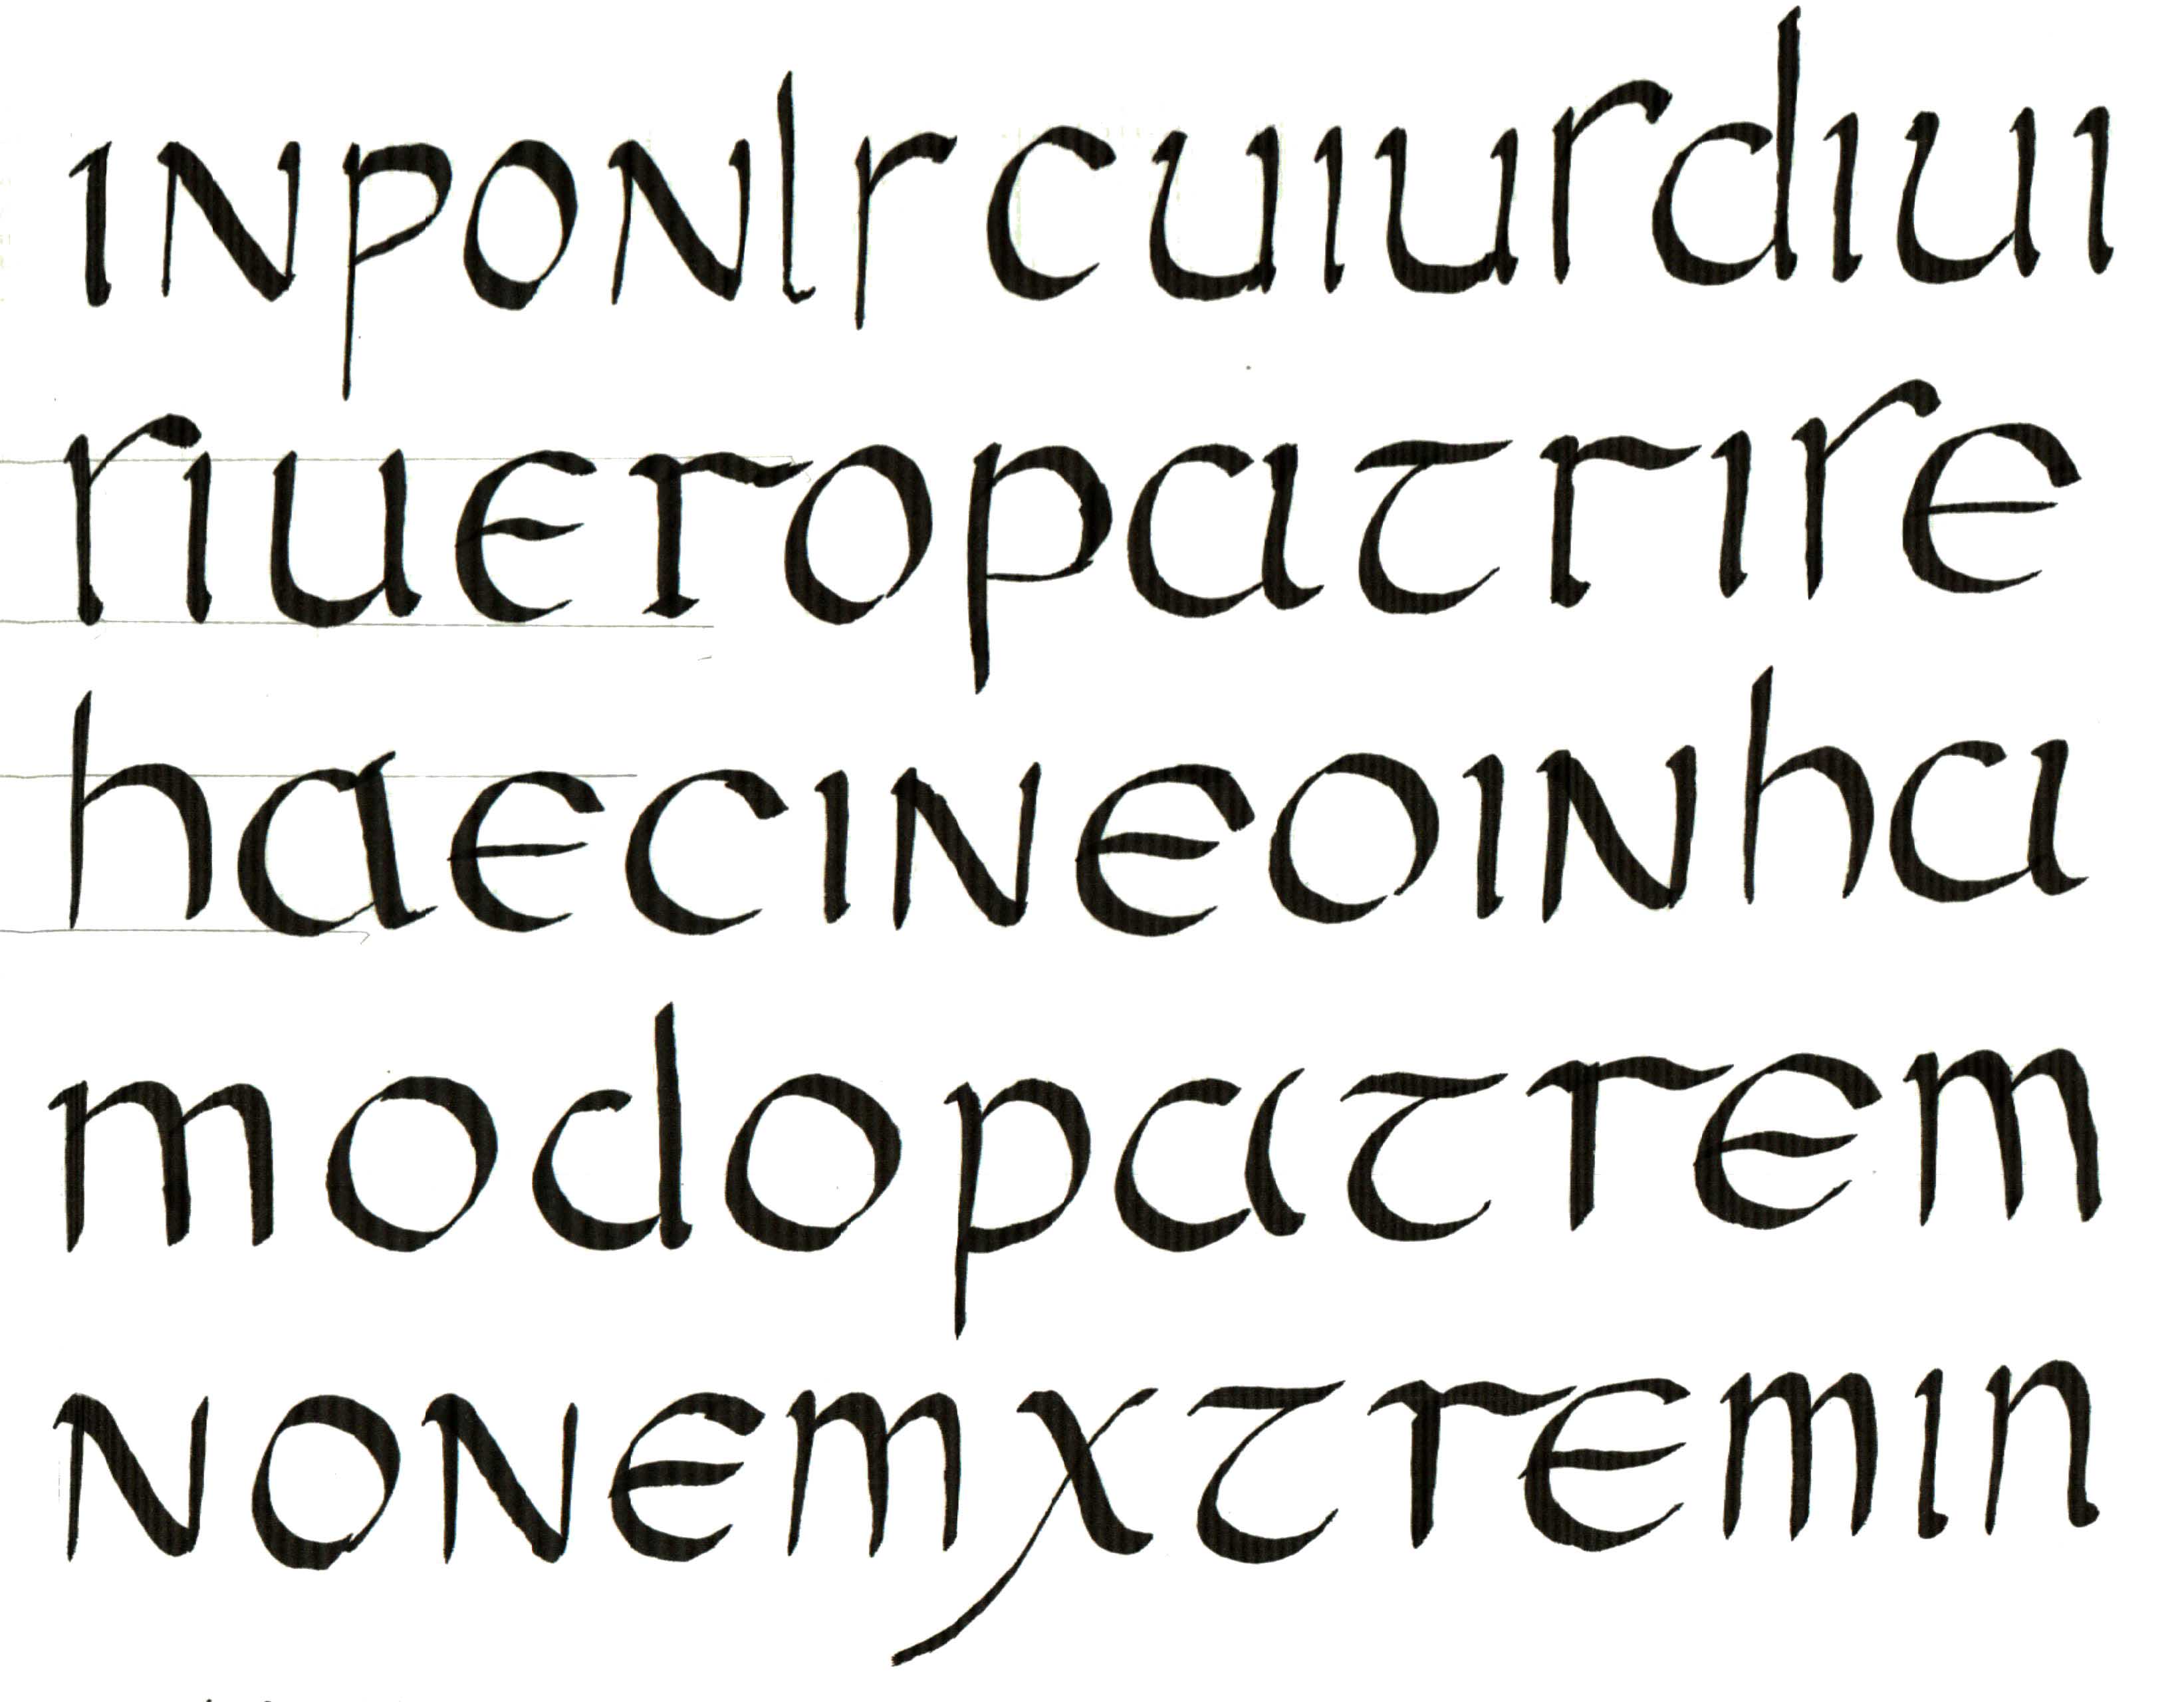 inponls cuiusdiui
siueropatrise
haecineoinha
modopatrem
nonemxtremin